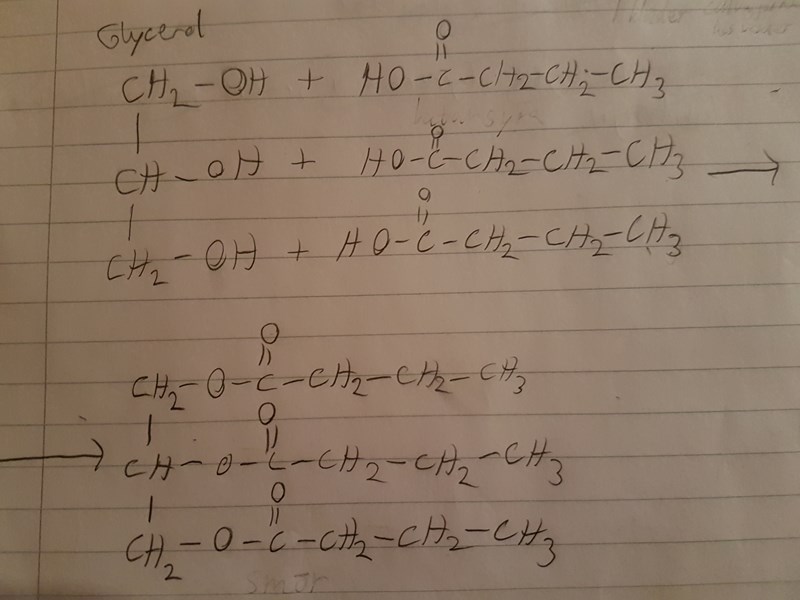 Glycerol
O
||
CH2 - OH + HO - C - CH2 - CH2 - CH3
|
O
||
CH - OH + HO - C - CH2 - CH2 - CH3 →
|
O
||
CH2 - OH + HO - C - CH2 - CH2 - CH3
O
||
CH2 - O - C - CH2 - CH2 - CH3
|
O
||
→ CH - O - C - CH2 - CH2 - CH3
|
O
||
CH2 - O - C - CH2 - CH2 - CH3
Smör